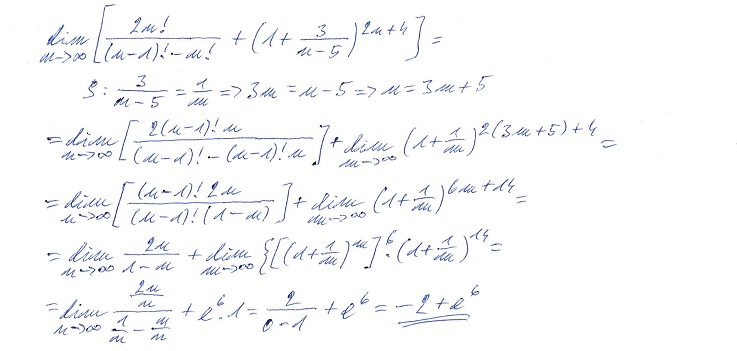 lim n→∞ [ 2n! / ((n-1)! - n!) + (1 + 3/(n-5))^(2n+4) ] =
S: 3/(n-5) = 1/m => 3m = n-5 => n = 3m+5
= lim n→∞ [ 2(n-1)! n / ((n-1)! - (n-1)! n) ] + lim m→∞ (1 + 1/m)^(2(3m+5)+4) =
= lim n→∞ [ (n-1)! 2n / ((n-1)! (1-n)) ] + lim m→∞ (1 + 1/m)^(6m+14) =
= lim n→∞ 2n/(1-n) + lim m→∞ {[(1+1/m)^m]^6 · (1+1/m)^14 =
= lim n→∞ (2n/n) / (1/n - n/n) + e^6 · 1 = 2/(0-1) + e^6 = -2 + e^6